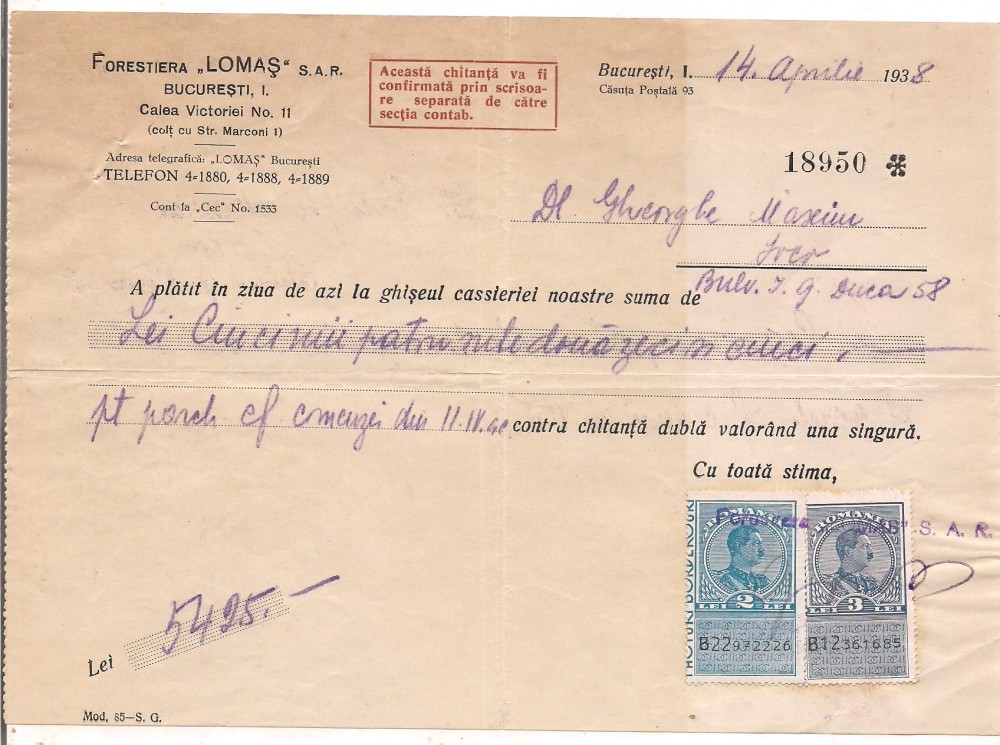 FORESTIERA „LOMAŞ" S.A.R.
BUCUREŞTI, I.
Calea Victoriei No. 11
(colţ cu Str. Marconi 1)
Adresa telegrafică: „LOMAŞ" Bucureşti
TELEFON 4-1880, 4-1888, 4-1889
Cont la „Cec" No. 1533
Această chitanţă va fi
confirmată prin scrisoa-
re separată de către
secţia contab.
Bucureşti, I. 14. Aprilie 1938
Căsuţa Poştală 93
18950
Dl. Gheorghe Maxim
Bulv. I. G. Duca 58
A plătit în ziua de azi la ghişeul cassieriei noastre suma de
Lei Cinci mii patru sute două zeci şi cinci.
pt parch cf comenzei din 11.IV. a.c. contra chitanţă dublă valorând una singură.
Cu toată stima,
Forestiera S. A. R.
ROMANIA ROMANIA
LEI 2 LEI LEI 3 LEI
B22972226 B12361685
Lei 5425.—
Mod. 85—S. G.